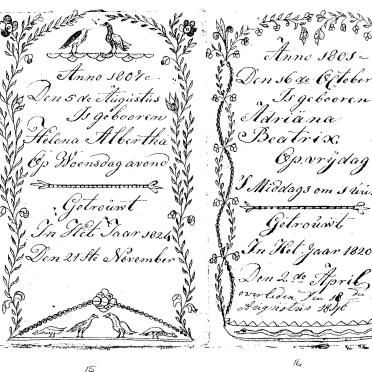 Anno 1807
Den 5 de Augustus
Is gebooren
Helena Albertha
Op Woensdag avond
Getrouwt
In Het Jaar 1824
Den 21ste November
15
Anno 1801
Den 16 de October
Is gebooren
Adriana
Beatrix
Op vrijdag
S Middags om 1 uur
Getrouwt
In Het Jaar 1820
Den 2 de April
overleden den 18
Augustus 1840
16